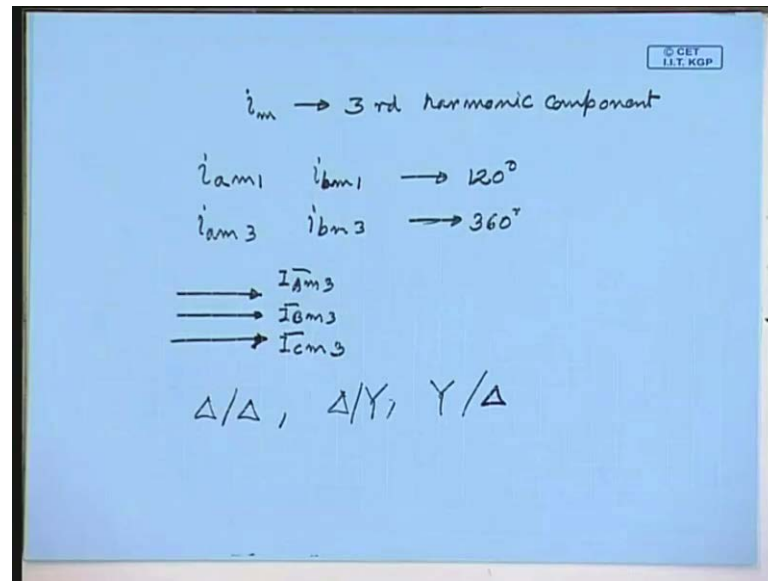 © CET
I.I.T. KGP
i_m → 3 rd harmonic component
i_am1 i_bm1 → 120°
i_am3 i_bm3 → 360°
→ I̅_Am3
→ I̅_Bm3
→ I̅_Cm3
Δ/Δ, Δ/Y, Y/Δ